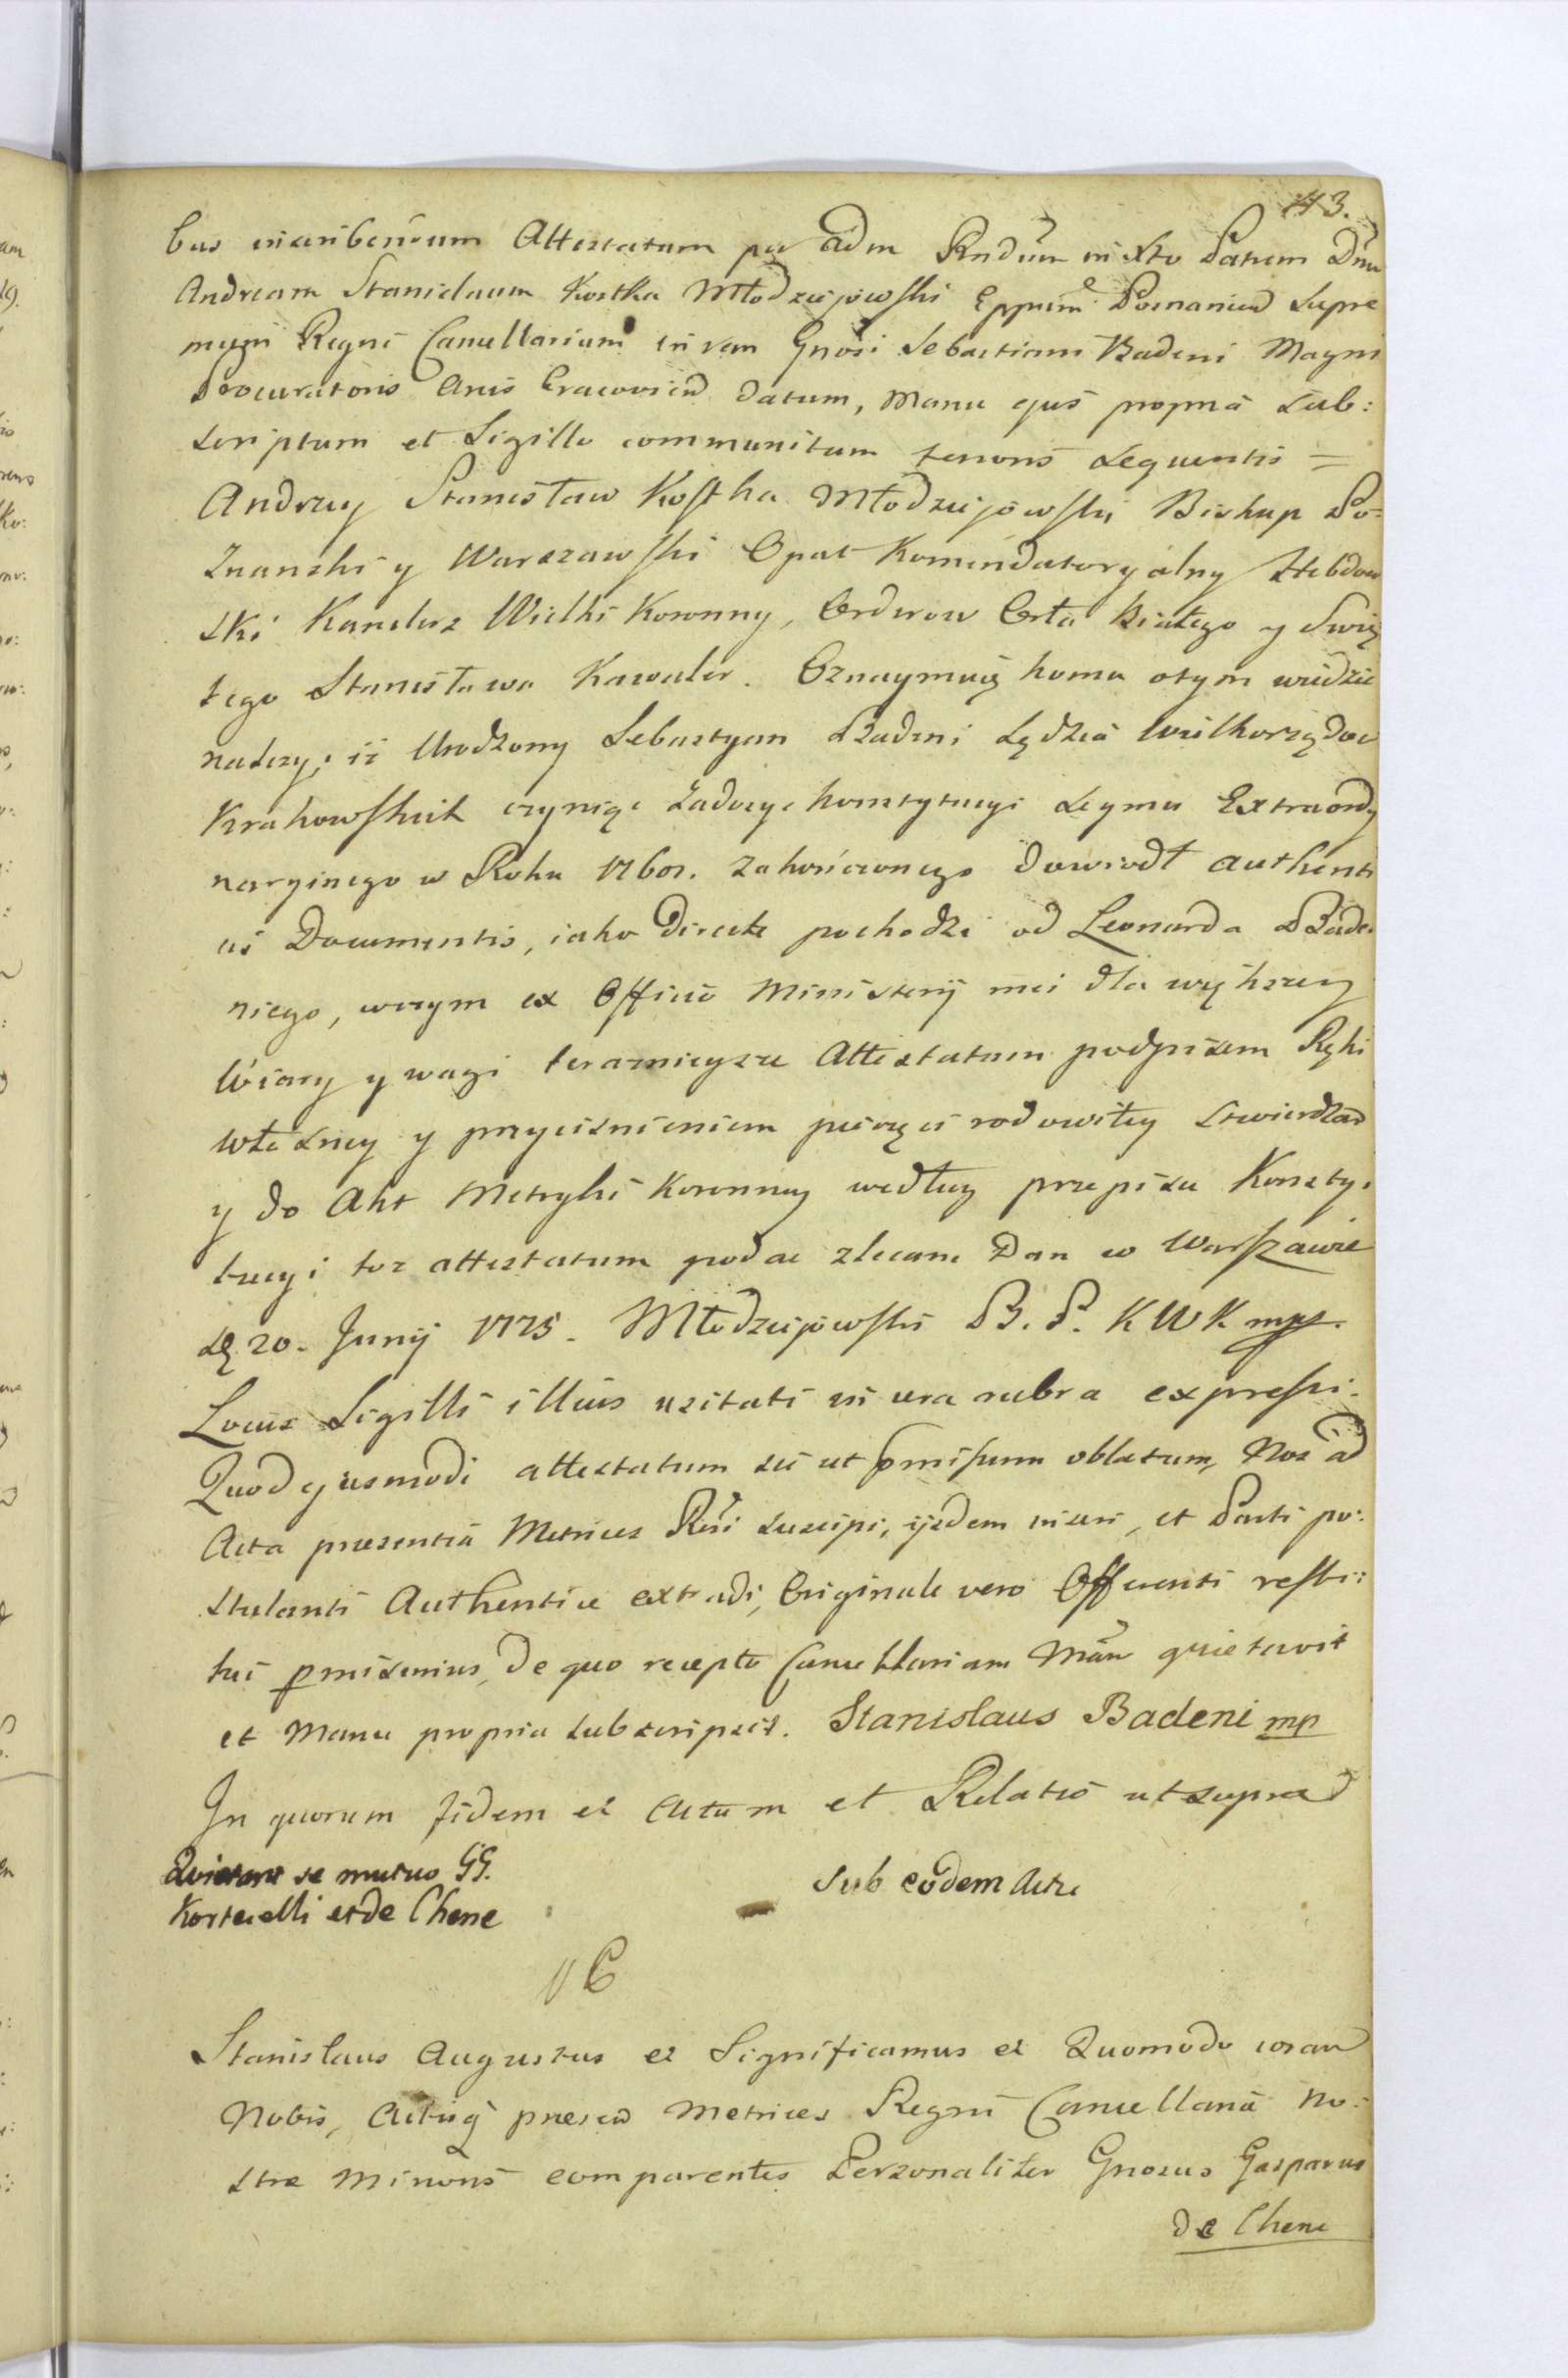 43.
bus inscribendum Attestatum per adm Rndum in Xto Patrem Dnum
Andream Stanislaum Kostka Młodzieiowski Eppum Posnanien Supre
mum Regni Cancellarium in rem Gnosi Sebastiani Badeni Magni
Procuratoris Arcis Cracovien datum, Manu ejus propria sub:
scriptum et Sigillo communitum tenoris sequentis =
Andrzey Stanisław Kostka Młodzieiowski Biskup Po=
znanski y Warszawski Opat Komendatoryalny Hebdow
ski Kanclerz Wielki Koronny, Orderow Orła Białego y Swię
tego Stanisława Kawaler. Oznaymuię komu otym wiedzieć
należy, iż Urodzony Sebastyan Badeni Sędzia Wielkorządow
Krakowskich czyniąc zadosyc konstytucyi Seymu Extraordy
naryinego w Roku 1768. zakończonego dowiodł authenti
cis Documentis, iako directe pochodzi od Leonarda Bade
niego, wczym ex Officio Ministerij mei dla większey
Wiary y wagi teraznieysze Attestatum podpisem Ręki
własney y przycisnieniem pieczęci rodowitey stwierdzam
y do Akt Metryki Koronney według przepisu Konsty.
tucyi toż attestatum podac zlecam Dan w Warszawie
dę 20. Junij 1775. Młodzieiowski B. P. K W K mpr.
Locus Sigilli illius usitati in cera rubra expressi.
Quod ejusmodi attestatum sic ut pmissum oblatum, Nos ad
Acta praesentia Metrices Rni suscipi, ijsdem inseri, et Parti po:
stulanti Authentice extradi, Originale vero Offerenti resti:
tui pmisimus, de quo recepto Cancellariam Nram quietavit
et Manu propria subscripsit. Stanislaus Badeni mp
In quorum fidem et Actum et Relatio ut supra
Quietant se mutuo GG.
Korticelli et de Chene
Sub eodem Actu
Stanislaus Augustus et Significamus et Quomodo coram
Nobis, Actisq praesen Metrices Regni Cancellariae No:
strae Minoris comparentes Personaliter Gnosus Gasparus
de Chene